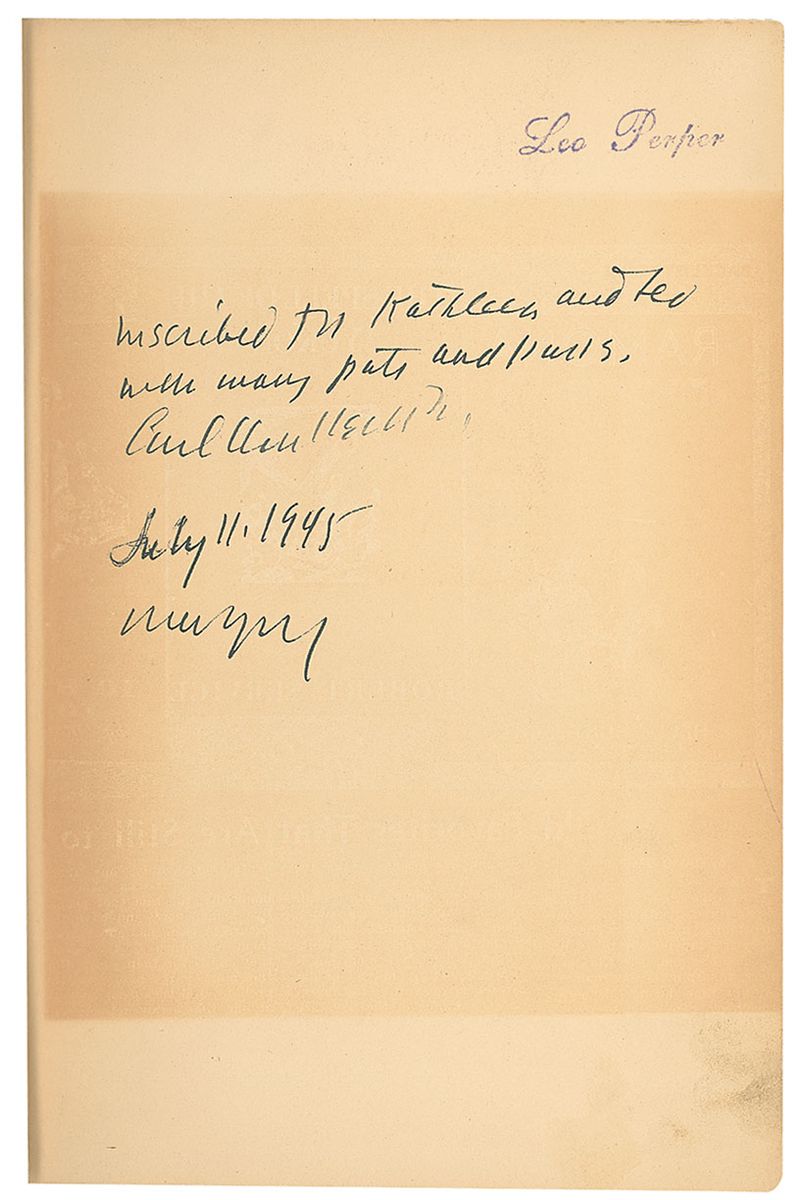 Leo Perper
Inscribed for Kathleen and Leo
with many pats and purrs,
Carl Van Vechten,
July 11. 1945
New York